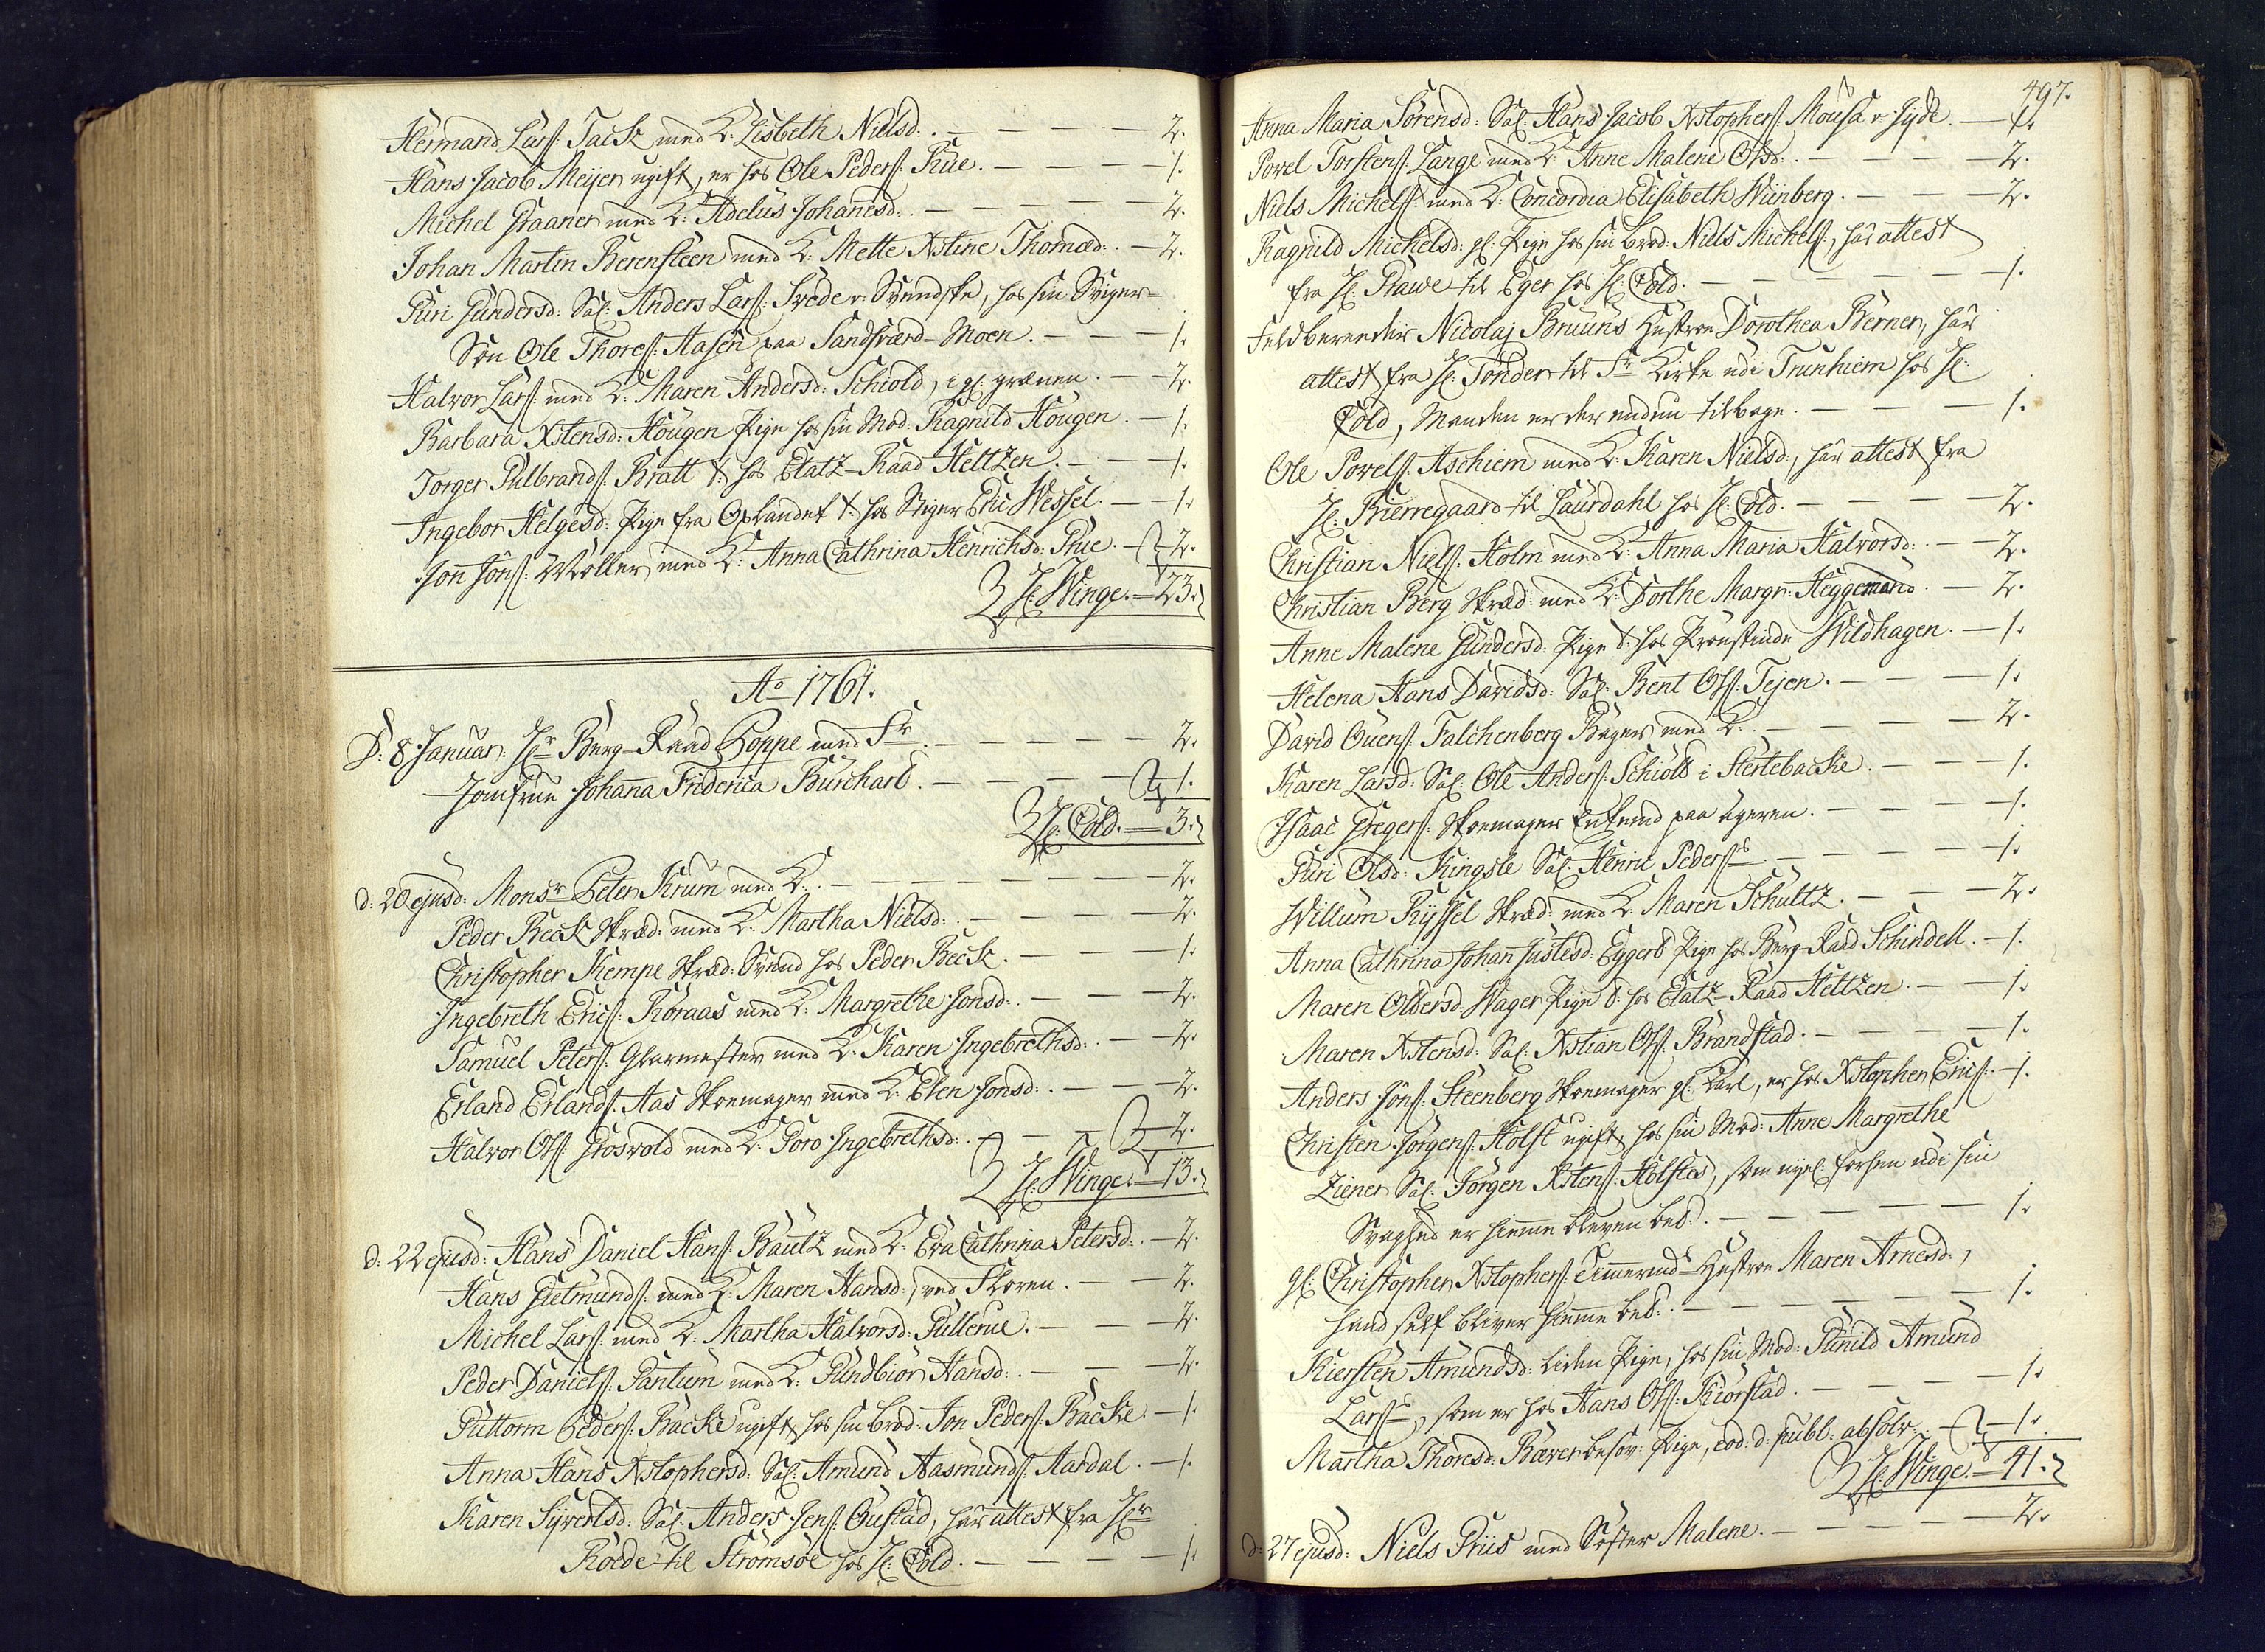 Hermand Lars: Tack med K: Lisbeth Nielsd:. — — — — 2.
Hans Jacob Meijer ugift, er hos Ole Peders: Rue. — — — 1.
Michel Graaner med K: Adelus Johanesd:. — — — — 2.
Johan Martin Berensteen med K: Mette Xstine Thomæd:. — 2.
Guri Gundersd: Sal: Anders Lars: Svede v: Svendske, hos sin Sviger-
Søn Ole Thores: Aasen paa Sandsværd-Moen. — — — 1.
Halvor Lars: med K: Maren Andersd: Schiold, i gl: grænen. — 2.
Barbara Xstensd: Hougen Pige hos sin Mod: Ragnild Hougen. — 1.
Torger Gulbrands: Bratt t: hos Etatz-Raad Heltzen. — — 1.
Ingebor Helgesd: Pige fra Oplandet t: hos Stiger Eric Wessel. — 1.
Jon Jons: Møller med K: Anna Cathrina Henrichsd: Rue. — 2.
H: Winge. — 23.
Ao 1761.
D: 8 Januar: Hr Berg-Raad Poppe med Fr. — — — — 2.
Jomfrue Johanna Friderica Burchard. — — — 1.
H: Cold. — 3.
d: 20 ejusd: Monsr Peter Krum med K:. — — — — 2.
Peder Beck Skræd: med K: Martha Nielsd:. — — — — 2.
Christopher Kempe Skræd: Svend hos Peder Beck. — — — 1.
Ingebreth Erics: Roraas med K: Margrethe Jonsd:. — — — 2.
Samuel Peters: Glarmester med K: Karen Ingebrethsd:. — — 2.
Erland Erlands: Aas Skoemager med K: Elen Jonsd:. — — — 2.
Halvor Ols: Grosvold med K: Goro Ingebrethsd:. — — — 2.
H: Winge. — 13.
d: 22 ejusd: Hans Daniel Hans: Bautz med K: Eva Cathrina Petersd:. — 2.
Hans Gietmunds: med K: Maren Hansd:, ved Skoven. — — 2.
Michel Lars: med K: Martha Halvorsd: Gullerue. — — — 2.
Peder Daniels: Pantum med K: Gundbior Hansd:. — — — 2.
Guttorm Peders: Backe ugift hos sin brod: Jon Peders: Backe. — 1.
Anna Hans Xstophersd: Sal: Amund Aasmunds: Aardal. — 1.
Karen Syvertsd: Sal: Anders Jens: Gustad, har attest fra Hr
Roede til Strømsøe hos H: Cold. — — — — 1.
497.
Anna Maria Sørensd: Sal: Hans Jacob Xstophers: Mousa v: Jyde. — 1.
Povel Torstens: Lange med K: Anne Malene Olsd:. — — — 2.
Niels Michels: med K: Concordia Elisabeth Wunberg. — — 2.
Ragnild Michelsd: gl: Pige hos sin brod: Niels Michels:, har attest
fra H: Rawe til Eger hos H: Cold. — — — — 1.
Feldberender Nicolaj Bruuns Hustroe Dorothea Berner, har
attest fra H: Tønder til Fr Kirke udi Trunhiem hos H:
Cold, Manden er der endnu tilbage. — — — — 1.
Ole Povels: Aschiem med K: Karen Nielsd:, har attest fra
H: Bierregaard til Laurdahl hos H: Cold. — — — — 2.
Christian Niels: Holm med K: Anna Maria Halvorsd:. — — 2.
Christian Berg Skræd: med K: Dorthe Margr: Heggemand. — 2.
Anne Malene Gundersd: Pige t: hos Provstinde Wildhagen. — 1.
Helena Hans Davidsd: Sal: Bent Ols: Tejen. — — — 1.
David Ouens: Falchenberg Bager med K:. — — — — 2.
Karen Larsd: Sal: Ole Anders: Schiold i Stertebacke. — — — 1.
Isaac Gregers: Skoemager Enkemd paa Ageren. — — — 1.
Guri Olsd: Kingsle Sal: Henric Pederss. — — — — 1.
Willum Ryssel Skræd: med K: Maren Schultz. — — — 2.
Anna Cathrina Johan Justesd: Eggers Pige hos Berg-Raad Schindell. — 1.
Maren Oldersd: Wager Pige t: hos Etatz-Raad Heltzen. — — 1.
Maren Xstensd: Sal: Xstian Ols: Brandstad. — — — — 1.
Anders Jons: Steenberg Skoemager gl: Karl, er hos Xstopher Erics:. — 1.
Christen Jørgens: Holst ugift hos sin Mod: Anne Margrethe
Ziener Sal: Jørgen Xstens: Holstes, som nyel: forhen udi sin
Svaghed er hiemme bleven bet:. — — — — — 1.
gl: Christopher Xstophers: Timermds Hustroe Maren Arnesd:,
hand self bliver hiemme bet:. — — — — — 1.
Kiersten Amundsd: liden Pige, hos sin Mod: Gunild Amund
Larss, som er hos Hans Ols: Kiorstad. — — — — 1.
Martha Thoresd: Bæver besov: Pige, eod: d: publ: absolv:. — 1.
H: Winge. — 41.
d: 27 ejusd: Niels Friis med Søster Malene. — — — — 2.